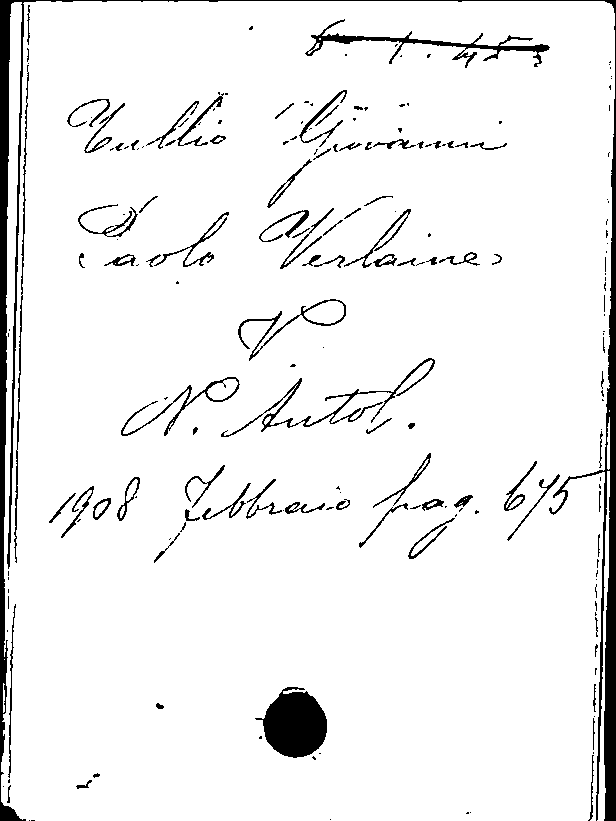 6. 1. 45
Tullio Giovanni
Paolo Verlaine
V
N. Antol.
1908 Febbraio pag. 675